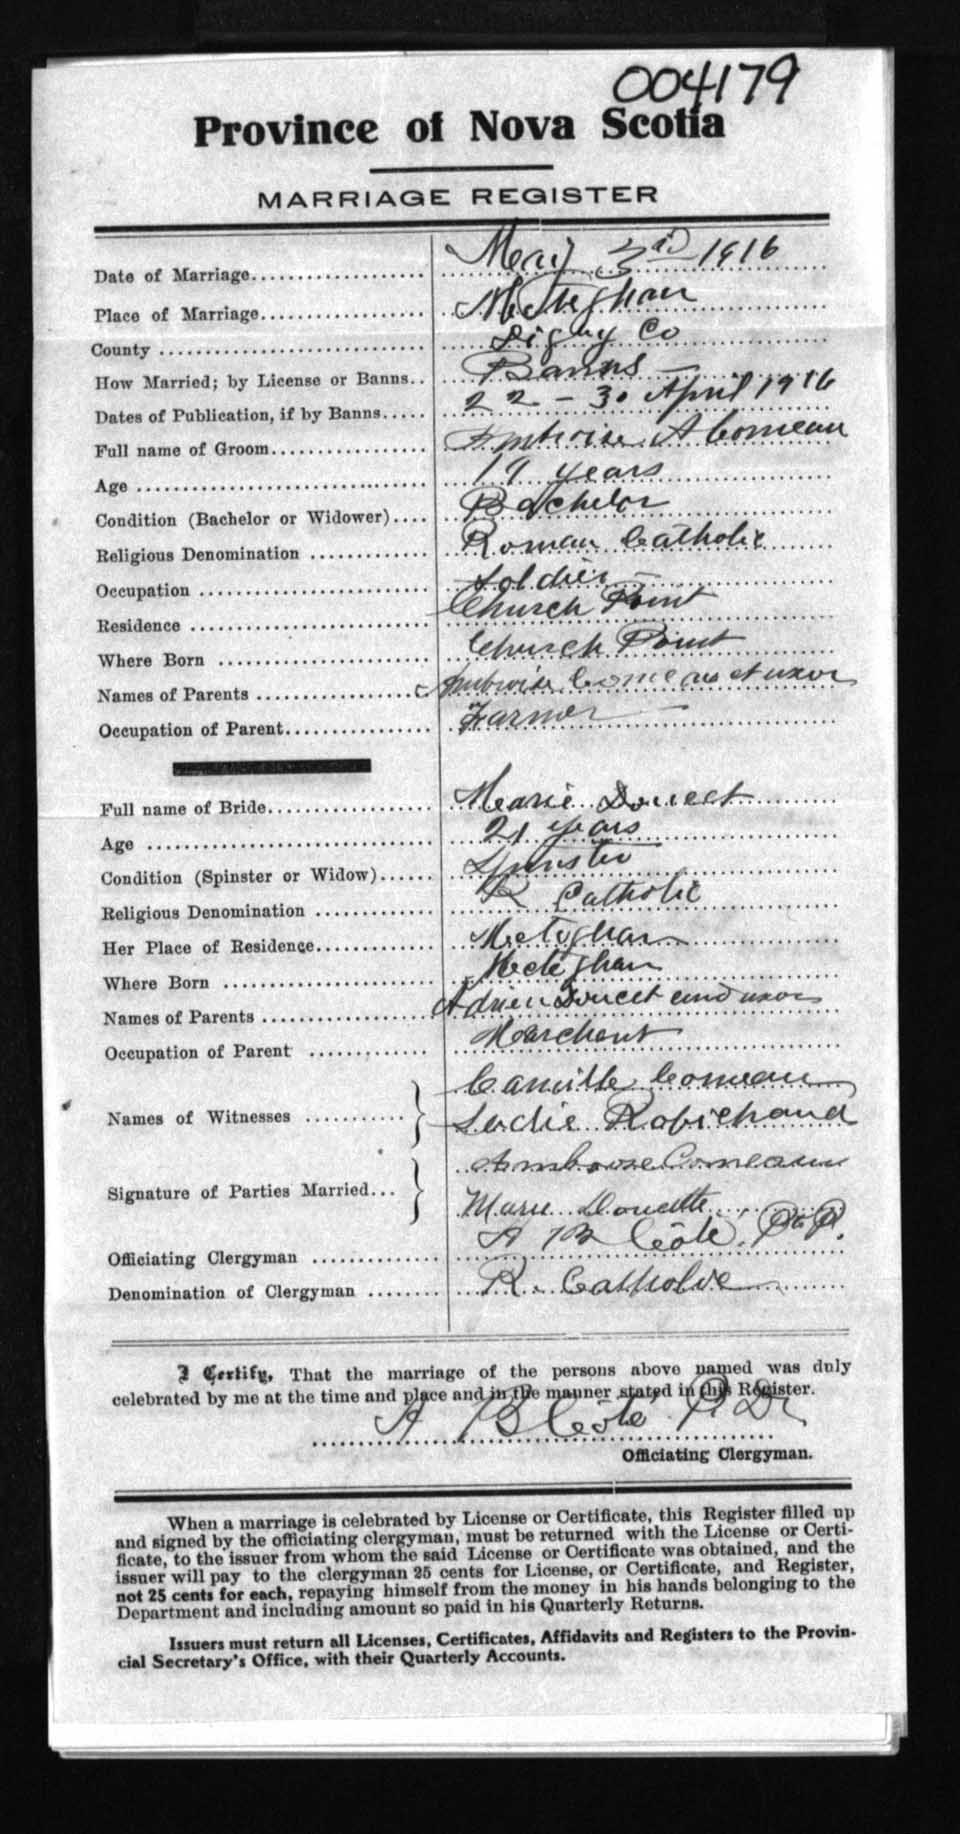 004179
Province of Nova Scotia
MARRIAGE REGISTER
Date of Marriage.................. May 3rd 1916
Place of Marriage................. Meteghan
County ............................ Digby Co
How Married; by License or Banns.. Banns —
Dates of Publication, if by Banns..... 22 - 30 April 1916
Full name of Groom................ Ambroise A Comeau
Age ............................... 19 years
Condition (Bachelor or Widower).... Bachelor
Religious Denomination ............ Roman Catholic
Occupation ........................ Soldier
Residence ......................... Church Point
Where Born ....................... Church Point
Names of Parents ................. Ambroise Comeau et uxor
Occupation of Parent................ Farmer
Full name of Bride................. Marie Doucet
Age ............................... 21 years
Condition (Spinster or Widow)...... Spinster
Religious Denomination ............ R Catholic
Her Place of Residence............. Meteghan
Where Born ....................... Meteghan
Names of Parents .................. Adrien Doucet and uxor
Occupation of Parent ............. Marchant
Camille Comeau
Names of Witnesses ...........
Ludie Robichaud
Ambroise Comeau
Signature of Parties Married...
Marie Doucette
Officiating Clergyman .............. A B Côté. P.P.
Denomination of Clergyman ........ R. Catholic
I Certify, That the marriage of the persons above named was duly
celebrated by me at the time and place and in the manner stated in this Register.
A B Côté
Officiating Clergyman.
When a marriage is celebrated by License or Certificate, this Register filled up
and signed by the officiating clergyman, must be returned with the License or Certi-
ficate, to the issuer from whom the said License or Certificate was obtained, and the
issuer will pay to the clergyman 25 cents for License, or Certificate, and Register,
not 25 cents for each, repaying himself from the money in his hands belonging to the
Department and including amount so paid in his Quarterly Returns.
Issuers must return all Licenses, Certificates, Affidavits and Registers to the Provin-
cial Secretary's Office, with their Quarterly Accounts.